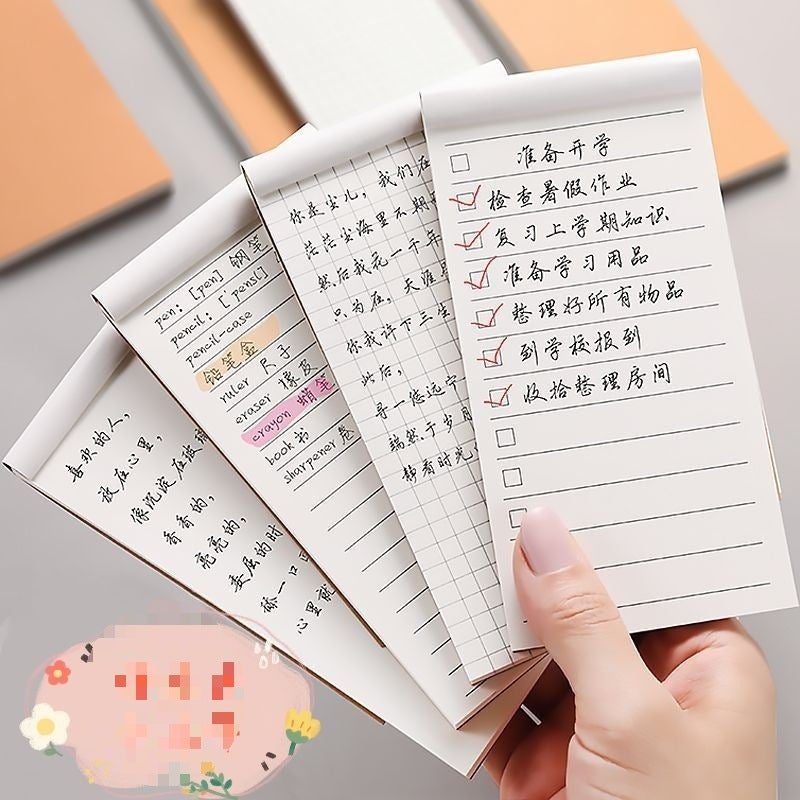 喜欢的人,
放在心里,
像沉淀在玻璃
香香的,
亮亮的,
委屈的时
舔一口
心里就
pen: [pen] 钢笔
pencil: ['pensl]
pencil-case
铅笔盒
ruler 尺子
eraser 橡皮
crayon 蜡笔
book 书
sharpener 卷
你是尘儿, 我们在
茫茫尘海里不期
然后我花一千年
只为在, 天涯
你我许下三生
此后,
寻一悠远宁
端然于岁月
静看时光
准备开学
检查暑假作业
复习上学期知识
准备学习用品
整理好所有物品
到学校报到
收拾整理房间